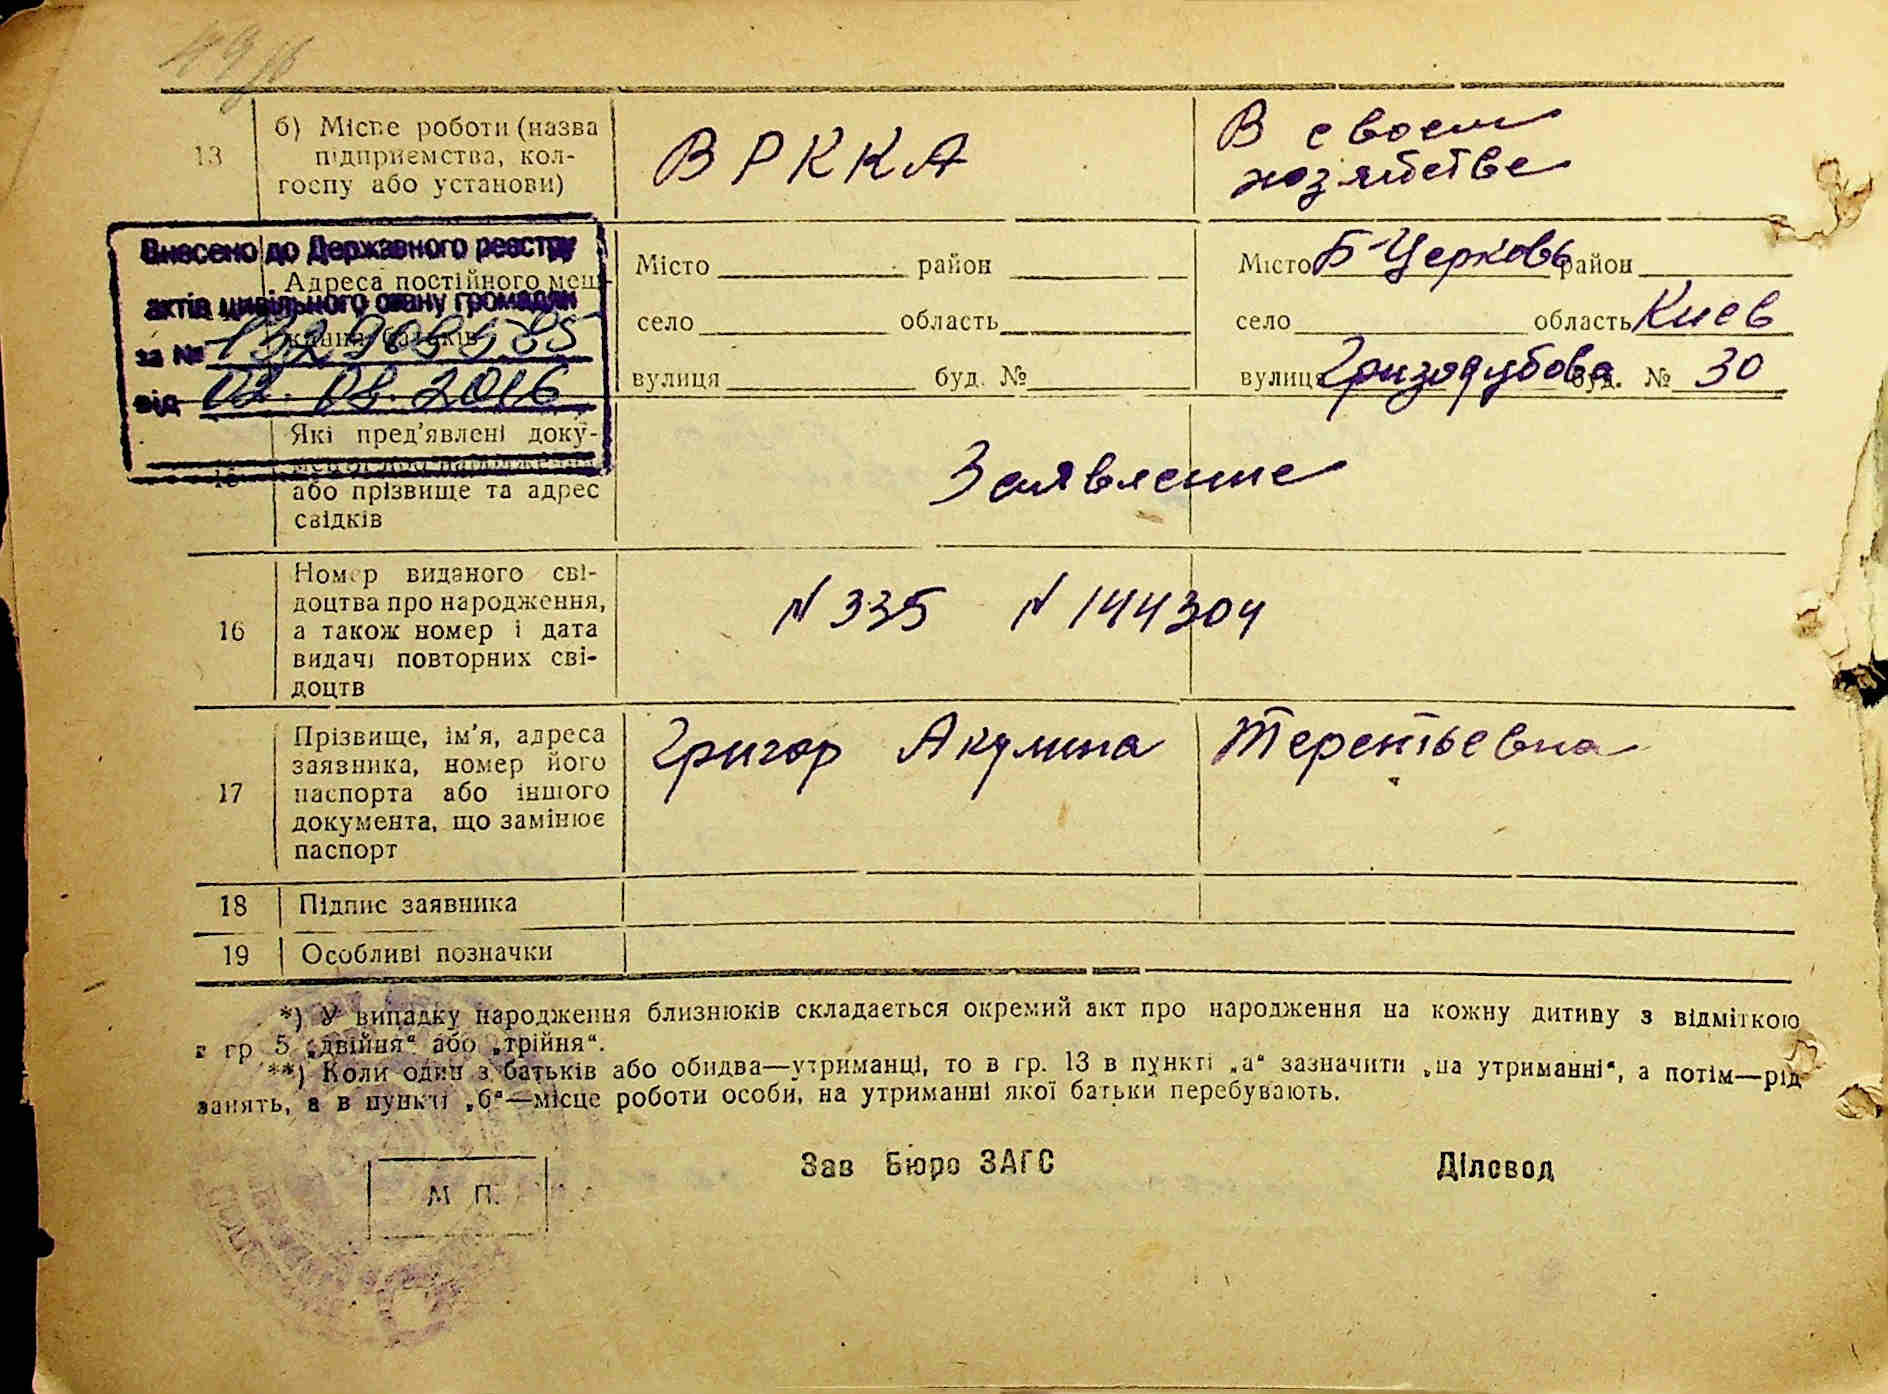 13
б) Місце роботи (назва
підприємства, кол-
госпу або установи)
В РККА
В своем
хозяйстве
Внесено до Державного реєстру
актів цивільного стану громадян
за №
від 02.08.2016
Адреса постійного меш-
Місто район
село область
вулиця буд. №
Місто Б-Церковь район
село область Киев
вулиця Гризодубова буд. № 30
15
Які пред'явлені доку-
менти про народження
або прізвище та адрес
свідків
Заявление
16
Номер виданого сві-
доцтва про народження,
а також номер і дата
видачі повторних сві-
доцтв
N 335 N 144304
17
Прізвище, ім'я, адреса
заявника, номер його
паспорта або іншого
документа, що замінює
паспорт
Григор Акулина Терентьевна
18 Підпис заявника
19 Особливі позначки
*) У випадку народження близнюків складається окремий акт про народження на кожну дитину з відміткою
в гр 5 „двійня" або „трійня".
**) Коли один з батьків або обидва—утриманці, то в гр. 13 в пункті „а" зазначити „на утриманні", а потім—рід
занять, а в пункті „б"—місце роботи особи, на утриманні якої батьки перебувають.
Зав Бюро ЗАГС
Діловод
М П.